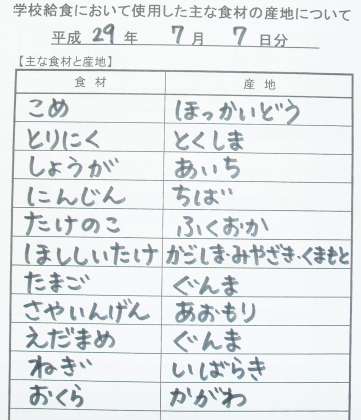 学校給食において使用した主な食材の産地について
平成 29 年 7 月 7 日分
【主な食材と産地】
食材 産地
こめ ほっかいどう
とりにく とくしま
しょうが あいち
にんじん ちば
たけのこ ふくおか
ほししいたけ かごしま・みやざき・くまもと
たまご ぐんま
さやいんげん あおもり
えだまめ ぐんま
ねぎ いばらき
おくら かがわ